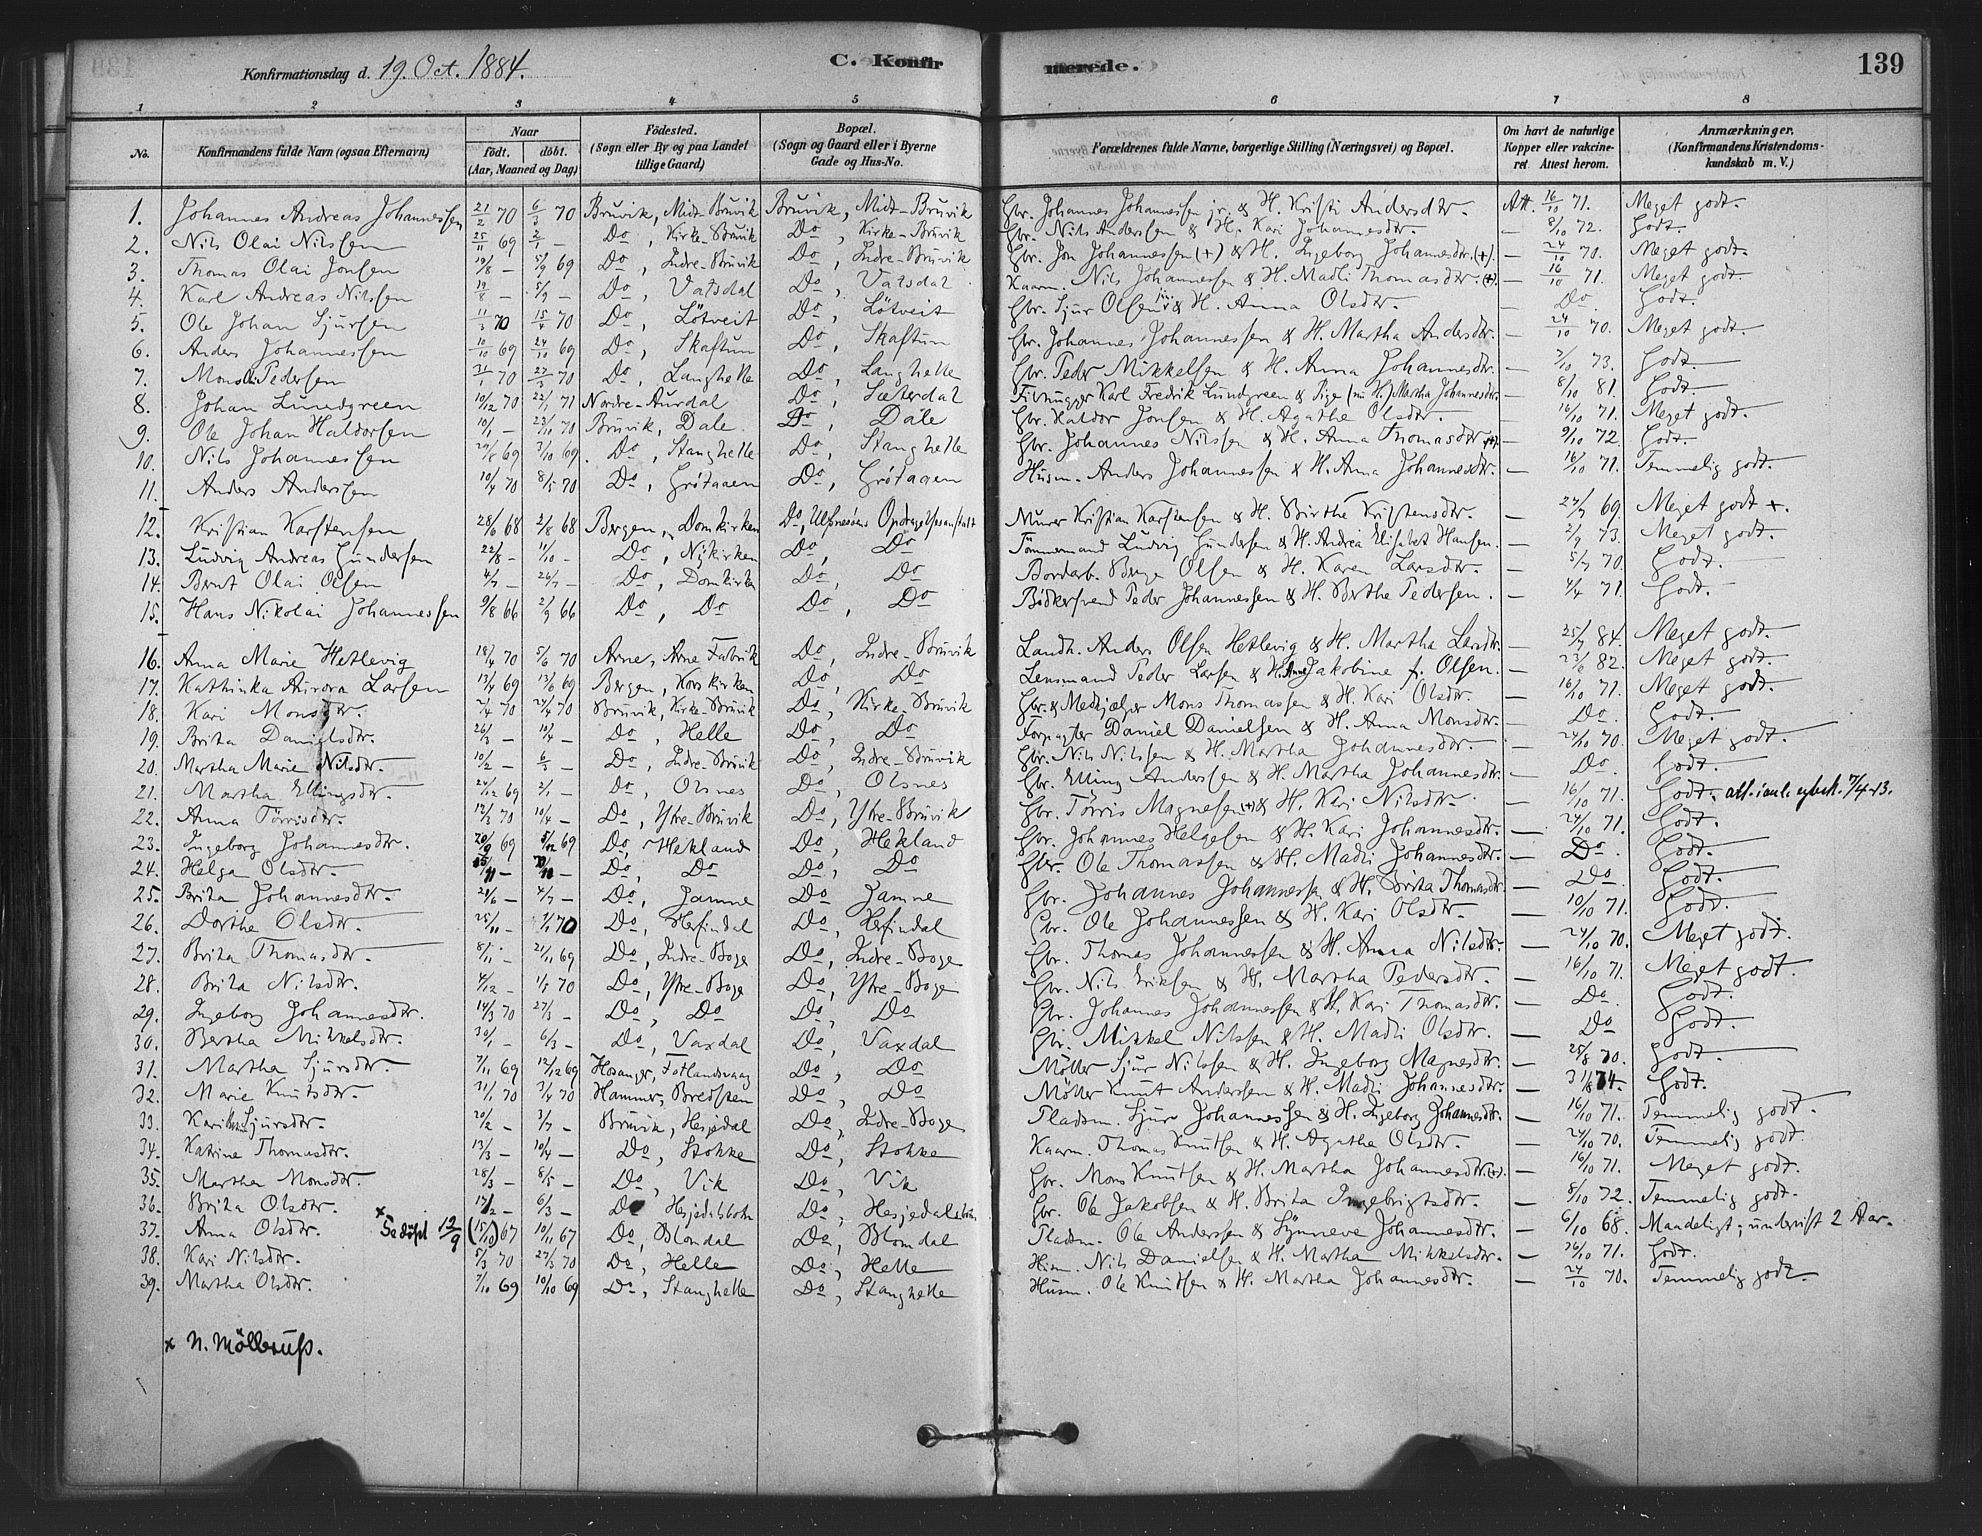 Konfirmationsdag d. 19. Oct. 1884.
C. Konfirmerede.
139
1 2 3 4 5 6 7 8
No. Konfirmandens fulde Navn (ogsaa Efternavn) Naar födt. döbt. (Aar, Maaned og Dag) Födested. (Sogn eller By og paa Landet tillige Gaard) Bopæl. (Sogn og Gaard eller i Byerne Gade og Hus-No.) Forældrenes fulde Navne, borgerlige Stilling (Næringsvei) og Bopæl. Om havt de naturlige Kopper eller vakcineret. Attest herom. Anmærkninger. (Konfirmandens Kristendomskundskab m. V.)
1. Johannes Andreas Johannessen 21/2 70 6/3 70 Bruvik, Midt-Bruvik Bruvik, Midt-Bruvik Gbr. Johannes Johannessen jr. & H. Kristi Andersdtr. Att. 16/10 71. Meget godt.
2. Nils Olai Nilssen 25/11 69 2/1 — Do, Kirke-Bruvik Do, Kirke-Bruvik Gbr. Nils Andersen & H. Kari Johannesdtr. — 8/10 72. Godt.
3. Thomas Olai Jonsen 19/8 — 5/9 69 Do, Indre-Bruvik Do, Indre-Bruvik Gbr. Jon Johannessen (+) & H. Ingeborg Johannesdtr. (+). — 24/10 70. Meget godt.
4. Karl Andreas Nilssen 19/8 — 5/9 — Do, Vatsdal Do, Vatsdal Kaarm. Nils Johannessen & H. Madli Thomasdtr. (+). — 16/10 71. Meget godt.
5. Ole Johan Sjursen 11/3 70 15/4 70 Do, Lötveit Do, Lötveit Gbr. Sjur Olsen jr. & H. Anna Olsdtr. — Do Godt.
6. Anders Johannessen 10/10 69 24/10 69 Do, Skaftun Do, Skaftun Gbr. Johannes Johannessen & H. Martha Andersdtr. — 24/10 70. Meget godt.
7. Mons Pedersen 31/1 70 27/3 70 Do, Langhelle Do, Langhelle Gbr. Peder Mikkelsen & H. Anna Johannesdtr. — 7/10 73. Godt.
8. Johan Lundgreen 10/12 70 22/1 71 Nordre-Aurdal Do, Sæterdal Karl Fredrik Lundgreen & Pige (nu H.) Martha Johannesdtr. — 8/10 81. Godt.
9. Ole Johan Haldorsen 10/1 — 23/1 70 Bruvik, Dale. Do, Dale Gbr. Haldor Jonsen & H. Agathe Olsdtr. — 16/10 71. Meget godt.
10. Nils Johannessen 29/8 69 3/10 69. Do, Stanghelle Do, Stanghelle Gbr. Johannes Nilssen & H. Anna Thomasdtr. (+). — 9/10 72. Godt.
11. Anders Andersen 10/4 70 8/5 70 Do, Grötaaen Do, Grötaaen Husm. Anders Johannessen & H. Anna Johannesdtr. — 16/10 71. Temmelig godt.
12. Kristian Karstensen 28/6 68 2/8 68 Bergen, Domkirken Do, Ulfsnesöens Opdragelsesanstalt Murer Kristian Karstensen & H. Birthe Kristensdtr. — 24/7 69 Meget godt +.
13. Ludvig Andreas Gundersen 22/8 — 11/10 — Do, Nykirken Do, Do Tömmermand Ludvig Gundersen & H. Andrea Elisabet Hansen. — 2/9 73. Meget godt.
14. Bernt Olai Olsen 4/7 — 26/7 — Do, Domkirken Do, Do Bordarb. Berge Olsen & H. Karen Larsdtr. — 5/7 70. Godt.
15. Hans Nikolai Johannessen 9/8 66 2/9 66 Do, Do Do, Do Bödkersvend Peder Johannessen & H. Berthe Pedersen. — 4/4 71. Godt.
16. Anna Marie Hetlevig 18/4 70 5/6 70 Arne, Arne Fabrik Do, Indre-Bruvik Landh. Anders Olsen Hetlevig & H. Martha Larsdtr. — 25/7 84. Meget godt.
17. Kathinka Aurora Larsen 13/4 69 13/6 69 Bergen, Korskirken Do, Do Lensmand Peder Larsen & H. Anne Jakobine f. Olsen. — 23/6 82. Meget godt.
18. Kari Monsdtr. 2/4 70 24/4 70 Bruvik, Kirke-Bruvik Do, Kirke-Bruvik Gbr. & Medhjælper Mons Thomassen & H. Kari Olsdtr. — 16/10 71. Meget godt.
19. Brita Danielsdtr. 26/3 — 10/4 — Do, Helle Do, Do Forpagter Daniel Danielsen & H. Anna Monsdtr. — Do. Godt.
20. Martha Marie Nilsdtr. 10/2 — 6/3 — Do, Indre-Bruvik Do, Indre-Bruvik Gbr. Nils Nilssen & H. Martha Johannesdtr. — 24/10 70. Meget godt.
21. Martha Ellingsdtr. 24/12 69 2/1 — Do, Olsnes Do, Olsnes Gbr. Elling Andersen & H. Martha Johannesdtr. — Do. Godt.
22. Anna Törrisdtr. 12/3 70 10/4 — Do, Ytre-Bruvik Do, Ytre-Bruvik Gbr. Törris Magnesen (+) & H. Kari Nilsdtr. — 16/10 71. Godt. 7/4-13.
23. Ingeborg Johannesdtr. 20/9 69 5/12 69 Do, Hekland Do, Hekland Gbr. Johannes Helgesen & H. Kari Johannesdtr. — 24/10 71. Godt.
24. Helga Olsdtr. Do, Do Do, Do Gbr. Ole Thomassen & H. Madli Johannesdtr. — Do. Godt.
25. Brita Johannesdtr. 24/6 — 4/7 — Do, Jamne Do Jamne Gbr. Johannes Johannessen & H. Brita Thomasdtr. — Do Godt.
26. Dorthe Olsdtr. 25/11 — 1/1 70 Do, Herfindal Do, Herfindal Gbr. Ole Johannessen & H. Kari Olsdtr. — 10/10 71. Godt.
27. Brita Thomasdtr. 8/11 — 21/11 69 Do, Indre-Boge Do, Indre-Boge Gbr. Thomas Johannessen & H. Anna Nilsdtr. — 24/10 70. Meget godt.
28. Brita Nilsdtr. 4/12 — 1/1 70 Do, Ytre-Boge Do, Ytre-Boge Gbr. Nils Eriksen & H. Martha Pedersdtr. — 16/10 71. Meget godt.
29. Ingeborg Johannesdtr. 14/3 70 27/3 — Do, Do Do, Do Gbr. Johannes Johannessen & H. Kari Thomasdtr. — Do Godt.
30. Bertha Mikkelsdtr. 30/1 — 6/3 — Do, Vaxdal Do, Vaxdal Gbr. Mikkel Nilssen & H. Madli Olsdtr. — Do Godt.
31. Martha Sjursdtr. 7/11 69 12/12 69 Hosanger, Fotlandsvaag Do, Do Möller Sjur Nilssen & H. Ingeborg Magnesdtr. — 25/8 70. Godt.
32. Marie Knutsdtr. 31/1 70 3/4 70 Hammer, Bredsten Do, Do Möller Knut Andersen & H. Madli Johannesdtr. — 74. Godt.
33. Kari Sjursdtr. 20/2 — 3/7 — Bruvik, Hesjedal Do, Indre-Boge Pladsm. Sjur Johannessen & H. Ingeborg Johannesdtr. — 16/10 71. Temmelig godt.
34. Katrine Thomasdtr. 13/3 — 10/4 — Do, Stokke Do, Stokke Kaarm. Thomas Knutsen & H. Agatha Olsdtr. — 24/10 70. Temmelig godt.
35. Martha Monsdtr. 28/3 — 8/5 — Do, Vik Do, Vik Gbr. Mons Knutsen & H. Martha Johannesdtr. (+). — 16/10 71. Meget godt.
36. Brita Olsdtr. 17/2 — 6/3 — Do Hesjedalsbotn Do, Hesjedalsbotn Gbr. Ole Jakobsen & H. Brita Ingebrigtsdtr. — 8/10 72. Temmelig godt.
37. Anna Olsdtr. x Se döpt 12/9 (15/10) 67 10/11 67 Do, Blomdal Do, Blomdal Pladsm. Ole Andersen & Synneve Johannesdtr. — 6/10 68. Maadeligt; undervist 2 Aar.
38. Kari Nilsdtr. 5/3 70 27/3 70 Do, Helle Do, Helle Husm. Nils Danielsen & H. Martha Mikkelsdtr. — 24/10 71. Godt.
39. Martha Olsdtr. 7/10 69 10/10 69 Do, Stanghelle Do, Stanghelle Husm. Ole Knutsen & H. Martha Johannesdtr. — 24/10 70. Temmelig godt.
x N. Möllerup.